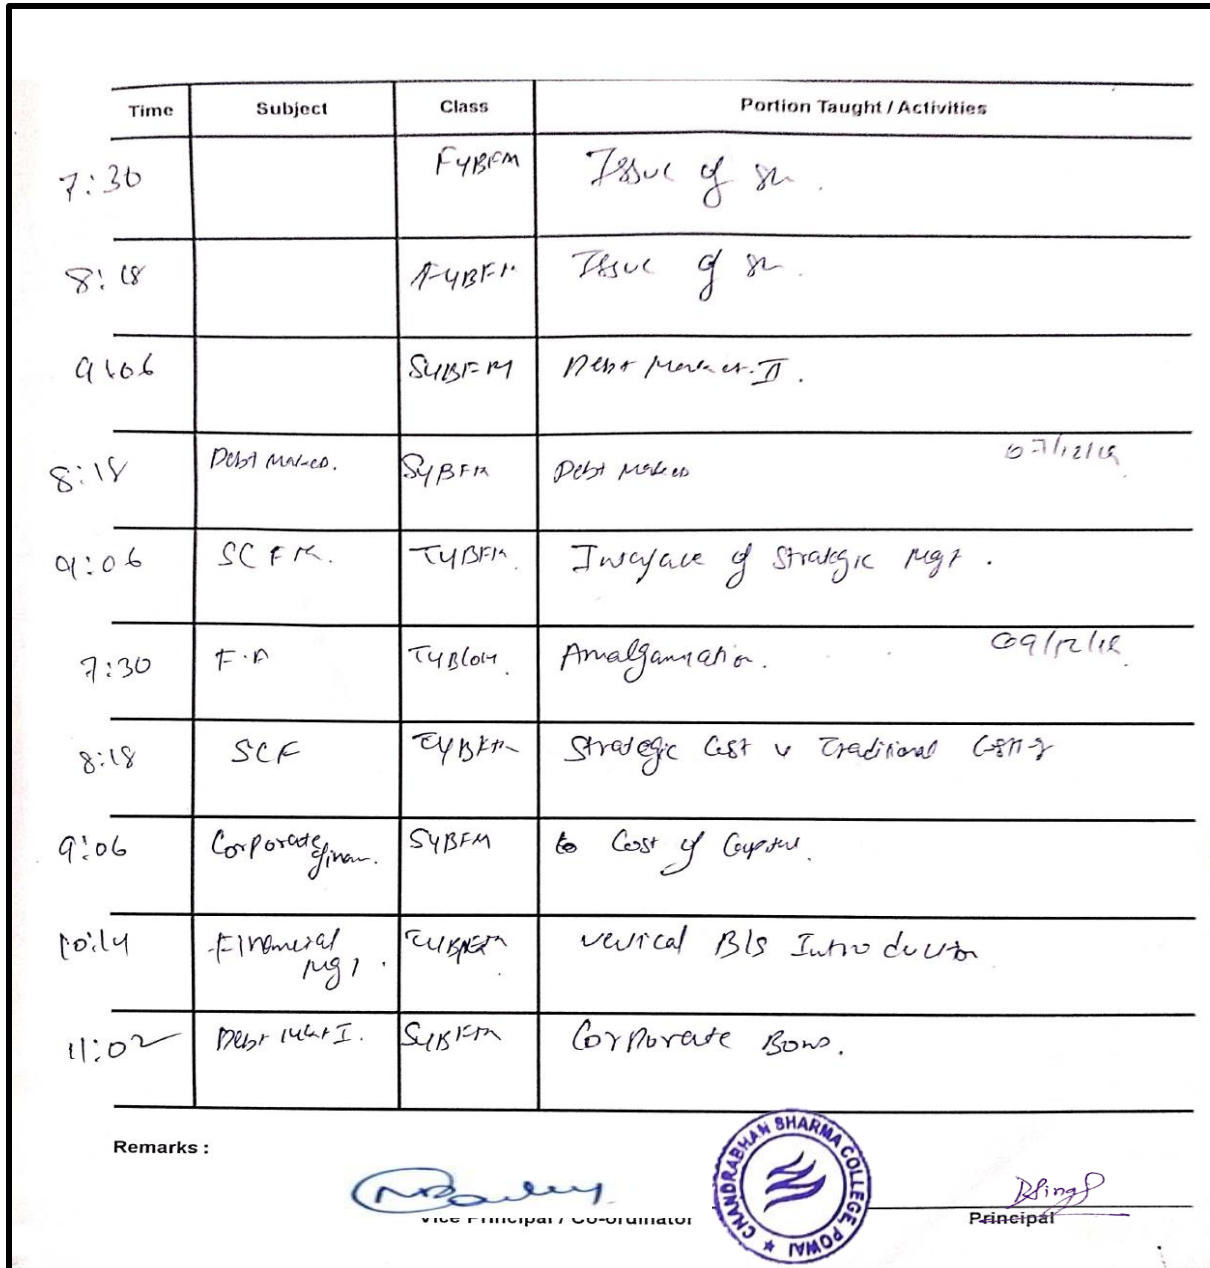 Time Subject Class Portion Taught / Activities
7:30 FYBFM Issue of sh.
8:18 FYBFM Issue of sh.
9:06 SYBFM Debt Market-II.
07/12/19
8:18 Debt Market. SYBFM Debt Market
9:06 SCFM. TYBFM. Interface of Strategic Mgt.
09/12/19
7:30 F.A TYBCom. Amalgamation.
8:18 SCF TYBFM Strategic Cost v Traditional Costing
9:06 Corporate SYBFM to Cost of Capital.
finan.
10:14 Financial TYBFM Vertical B/S Introduction
Mgt.
11:02 Debt Mkt I. SYBFM Corporate Bond.
Remarks :
Vice Principal / Co-ordinator
Principal
CHANDRABHAN SHARMA COLLEGE, POWAI